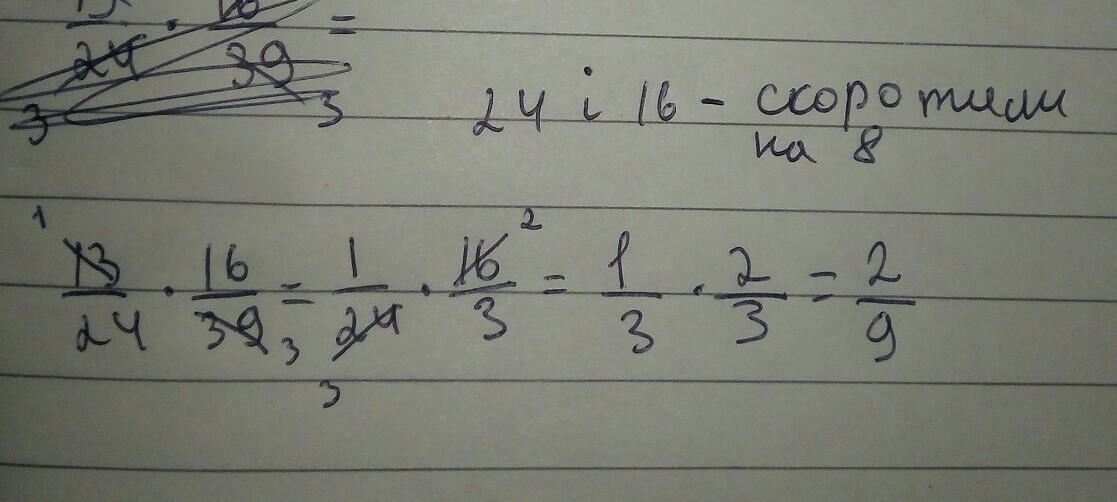 24 · 39 =
3 3
24 і 16 - скоротили
на 8
1 2
13/24 · 16/39 = 1/24 · 16/3 = 1/3 · 2/3 = 2/9
3
3